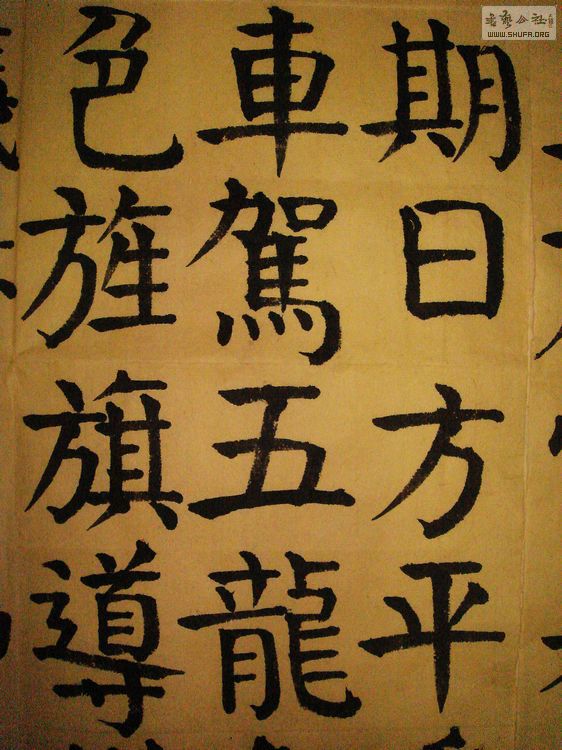 期日方平
車駕五龍
色旌旗導
書藝公社
WWW.SHUFA.ORG